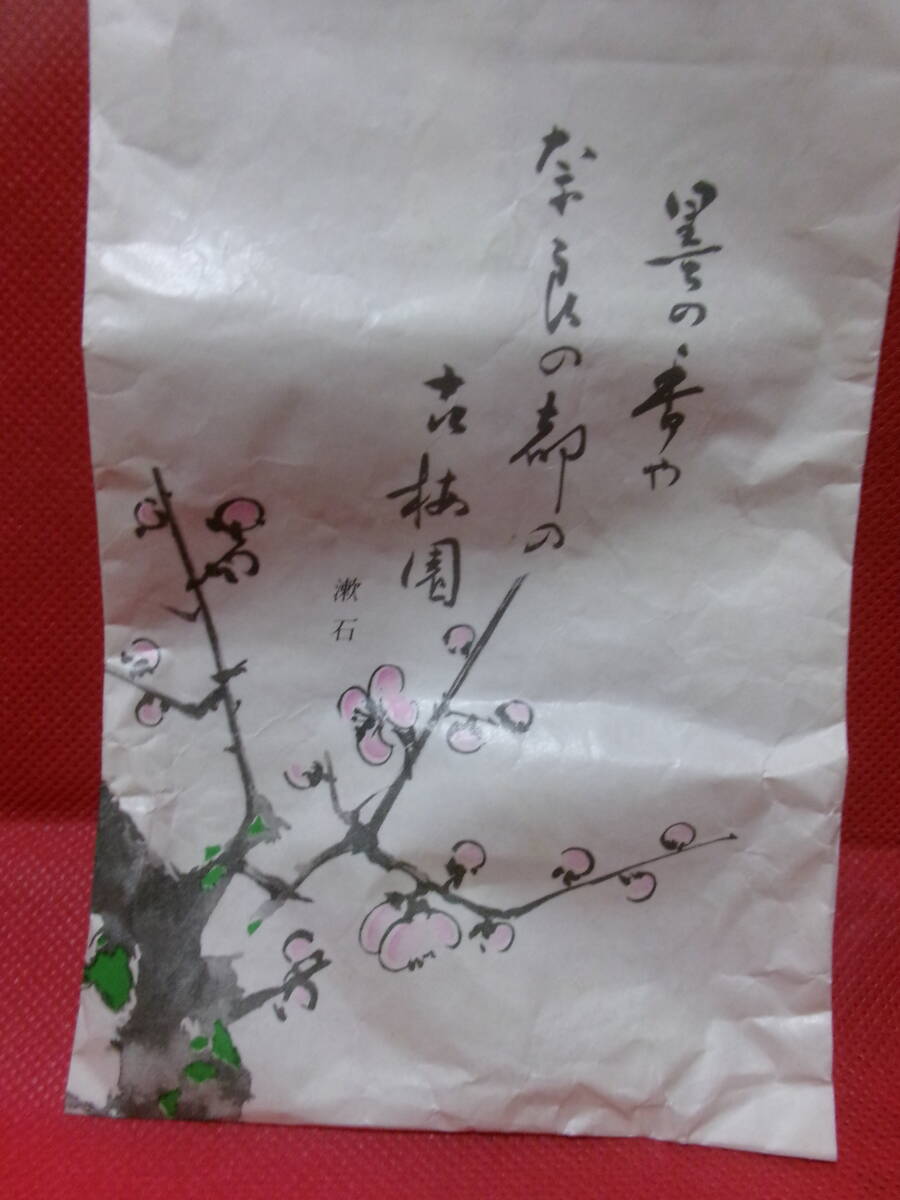 墨の香や
奈良の都の
古梅園
漱石